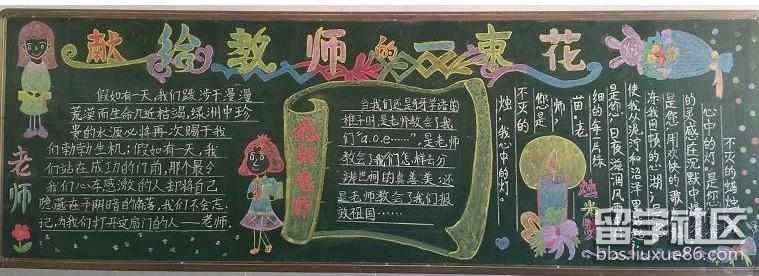 献给教师的一束花
老师
假如有一天,我们跋涉于漫漫
荒漠而生命几近枯竭,绿洲中珍
贵的水源必将再次赐于我
们勃勃生机;假如有一天,我
们站在成功的门前,那个最令
我们心存感激的人却将自己
隐藏在于阴暗的角落,我们不会忘
记,为我们打开这扇门的人——老师。
感谢老师
当我们还是牙牙学语的
稚子时,是老师教会了我
们“a.o.e……”,是老师
教会了我们怎样去分
辨世间的真善美;还
是老师教会了我们报
效祖国……
不灭的蜡烛,
心中的灯。是您
的灵感在沉默中爆
是您,用欢快的歌
冻我冒烟的心湖,是
使我从泥河和沼泽里
是您,日夜滋润风
细的垂片绿
苗。老
师,
您是
不灭的
烛,我心中的灯。
烛光
留学社区
bbs.liuxue86.com